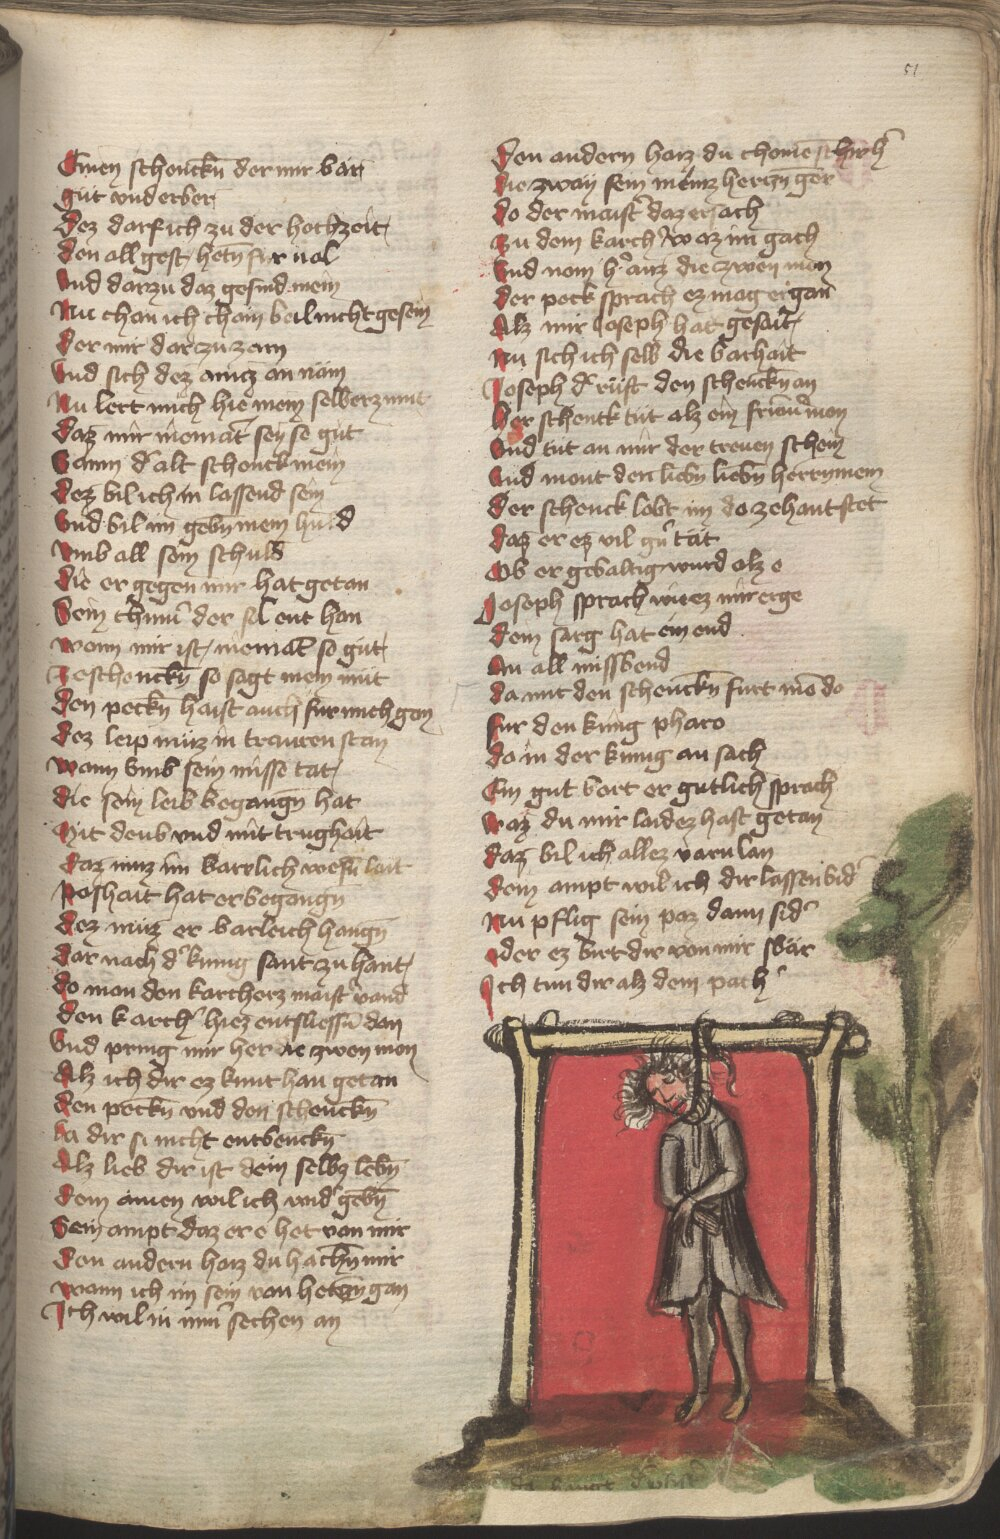 51
Einen schenckn̄ der mir bar
gut vnd erber
Dez darf ich zu der hochzeit
den all gest hetn̄ fur vol
Vnd darzu daz gesind mein
Nu chan ich chain beil nicht gesein
Der mir dar zu zam
Vnd sich dez amtz an näm
Nu lert mich hie mein selberz mut
Daz mir niemāt sey so gut
Wann d' alt schenck mein
Dez bil ich in lassend sein
Vnd bil im gebn̄ mein huld
Vmb all sein schuld
Die er gegen mir hat getan
Sein der sol ent han
Wann mir ist niemāt so gut
Ie schenckn̄ so sagt mein mut
Den peckn̄ haist auch fur mich gan
Dez leip muz in trauren stan
Wann vmb sein misse tat
Die sein leib begangn̄ hat
Mit deub vnd mit trughait
Daz muz im warlich wesn̄ lait
Poshait hat er begangn̄
Dez muz er barleich hangn̄
Dar nach d' kunig sant zu hant
Do man den karcherz maist' vand
Den karch' hiez entsliessn̄ dan
Vnd pring mir her die zwen man
Alz ich dir ez kunt han getan
Den peckn̄ vnd den schenckn̄
La dir si nicht entbenckn̄
Alz lieb dir ist dein selbz lebn̄
Dem ainen wil ich wid' gebn̄
Sein ampt daz er e het von mir
Den andern haiz du hachn̄ mir
Wann ich im sein van hetn̄ gan
Ich wil in nim' sechen an
Den andern haiz du
Die zway sein meinz herczn ger
Do der maist' daz ersach
Zu dem karch' waz im gach
Vnd nom h' auz die zwen man
Der peck sprach ez mag ergan
Alz mir Joseph hat gesait
Nu sich ich selb die barhait
Joseph d' rüft den schenckn̄ an
Her schenck tut alz ein man
Vnd tut an mir der treuen schein
Vnd mont den liebn̄ liebn̄ herrn mein
Der schenck lobt im do zehant stet
Daz er ez vil g'n tät
Ob er gebaltig wurd alz e
Joseph sprach wie ez mir erge
Dein sarg hat ein end
An all missbend
Da mit den schenckn̄ furt mā do
Fur den kunig pharo
Do in der kunig an sach
Ein gut bort er gutlich sprach
Waz du mir laidez hast getan
Daz bil ich allez varn lan
Dein ampt wil ich dir lassen bid'
Nu pflig sein paz dann sid'
Oder ez birt dir von mir sbär
Ich tun dir alz dem pach'